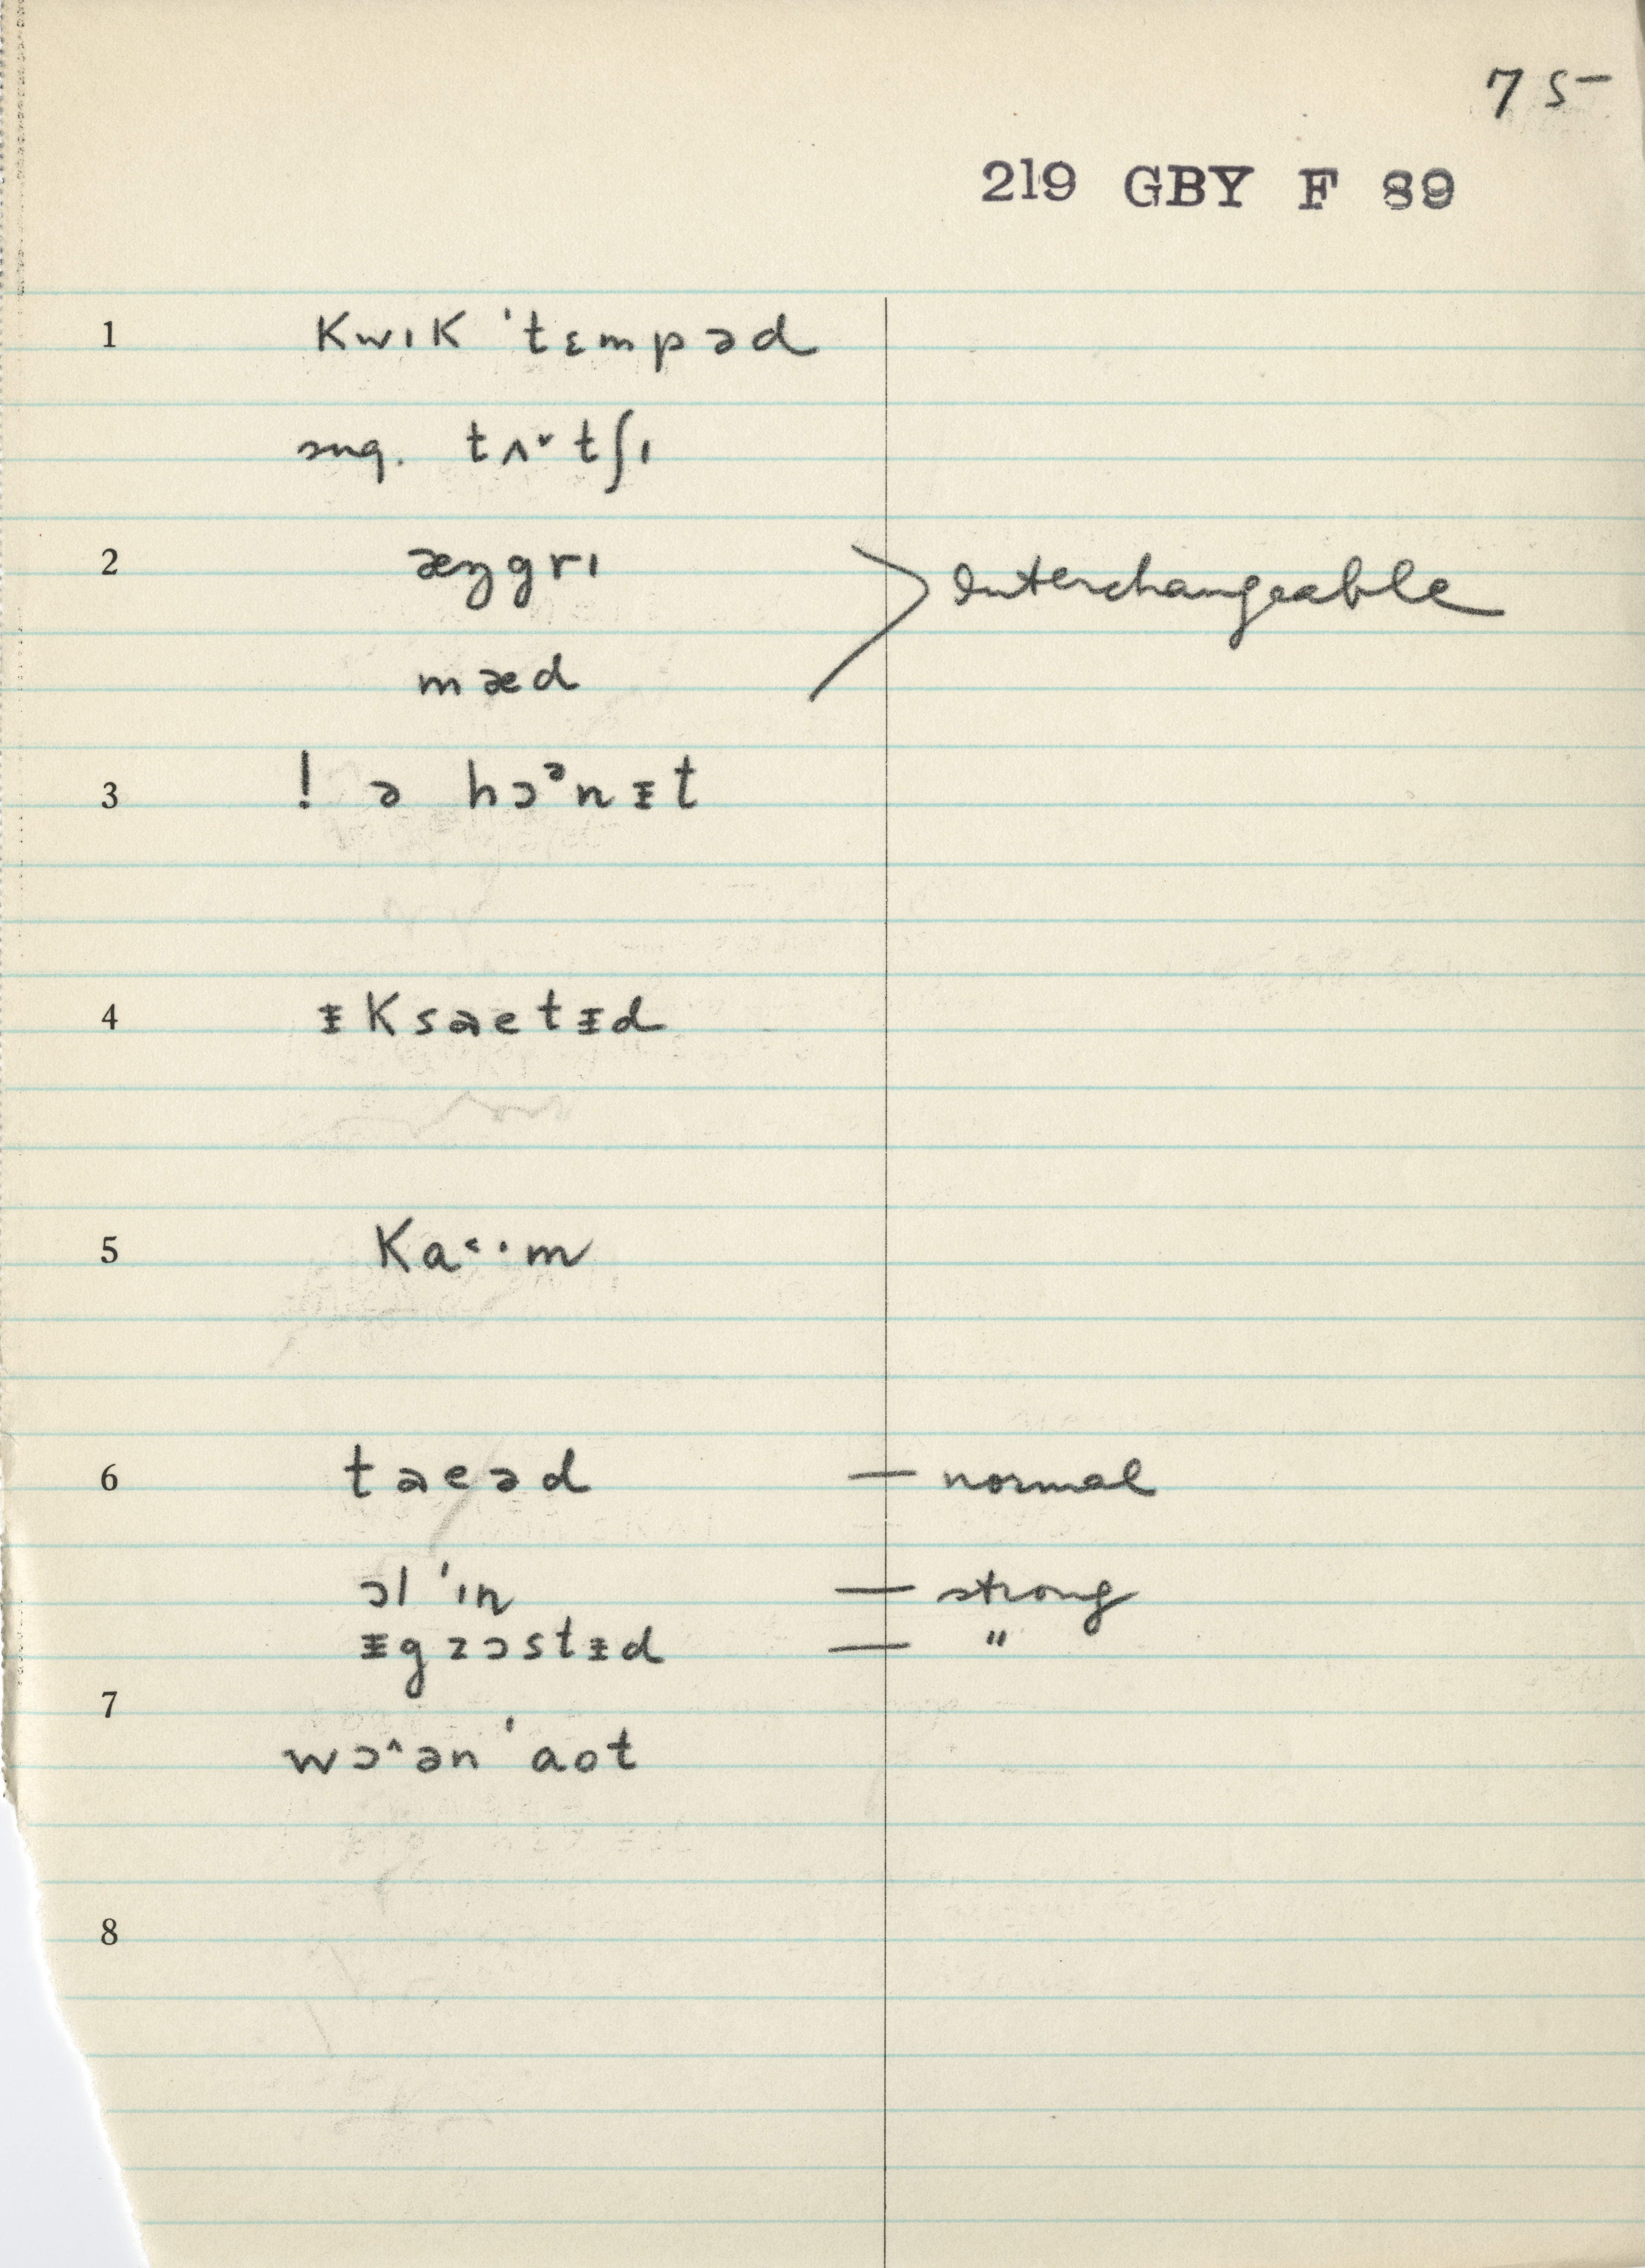 75
219 GBY F 89
1 kwɪk ˈtɛmpəd
sug. tʌ˅tʃɪ
2 æŋgrɪ > Interchangeable
mæd
3 ! ə hɔᵊnᵻt
4 ᵻksaetᵻd
5 ka˂·m
6 taeəd — normal
ɔl ˈɪn — strong
ᵻgzɔstᵻd — "
7
wɔ˄ən ˈaot
8